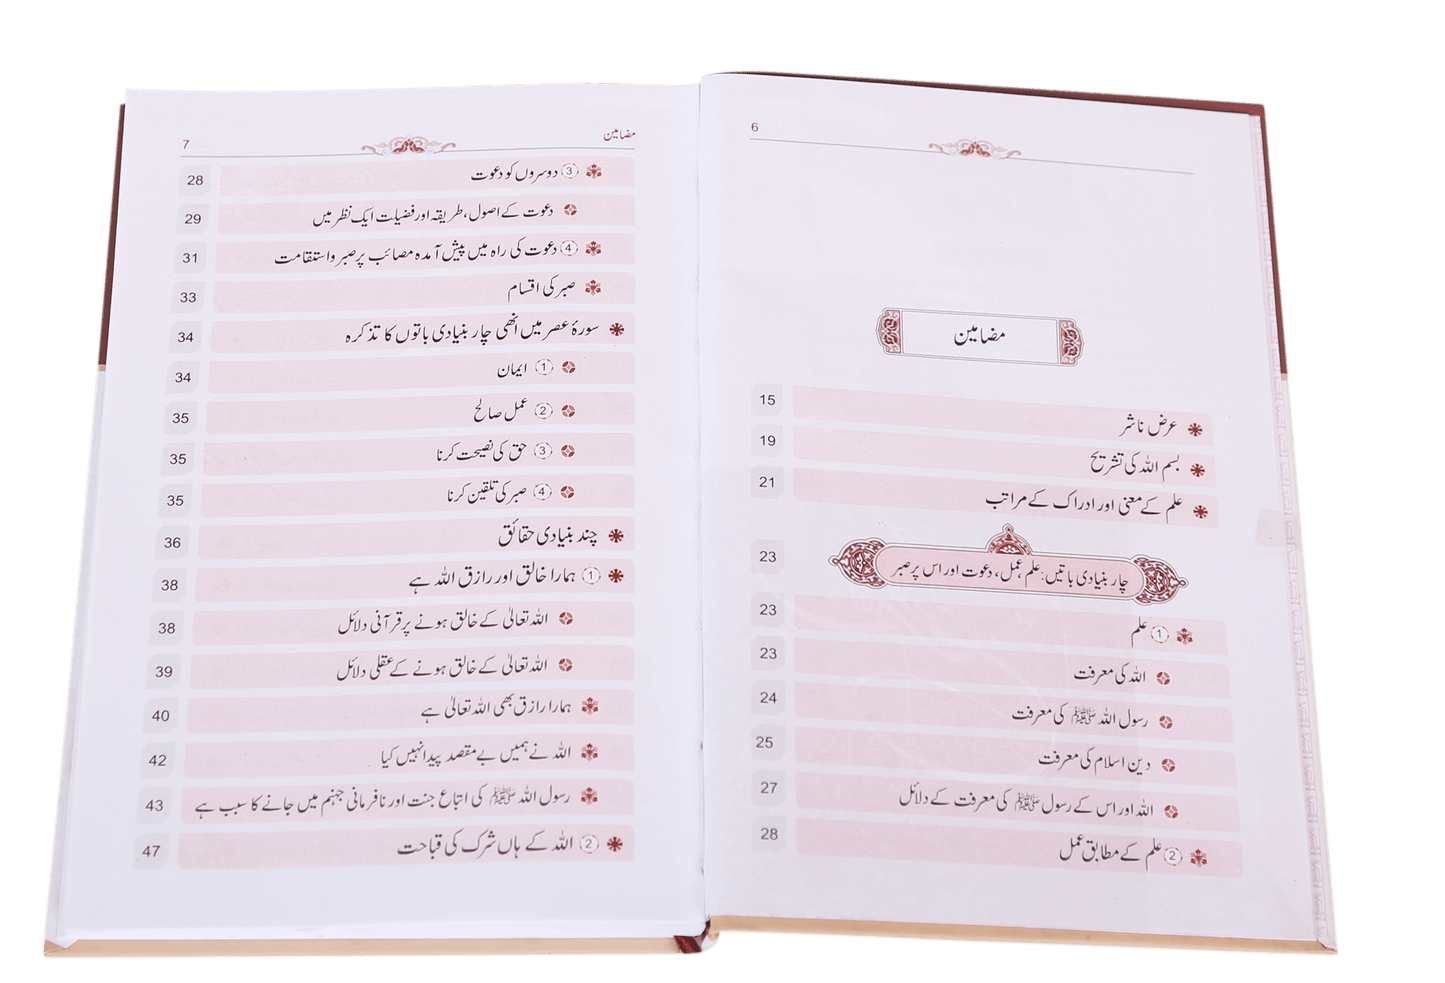 6
مضامین
عرض ناشر 15
بسم اللہ کی تشریح 19
علم کے معنی اور ادراک کے مراتب 21
چار بنیادی باتیں: علم، عمل، دعوت اور اس پر صبر 23
① علم 23
اللہ کی معرفت 23
رسول اللہ ﷺ کی معرفت 24
دین اسلام کی معرفت 25
اللہ اور اس کے رسول ﷺ کی معرفت کے دلائل 27
② علم کے مطابق عمل 28
مضامین 7
③ دوسروں کو دعوت 28
دعوت کے اصول، طریقہ اور فضیلت ایک نظر میں 29
④ دعوت کی راہ میں پیش آمدہ مصائب پر صبر و استقامت 31
صبر کی اقسام 33
سورۂ عصر میں انھی چار بنیادی باتوں کا تذکرہ 34
① ایمان 34
② عمل صالح 35
③ حق کی نصیحت کرنا 35
④ صبر کی تلقین کرنا 35
چند بنیادی حقائق 36
① ہمارا خالق اور رازق اللہ ہے 38
اللہ تعالیٰ کے خالق ہونے پر قرآنی دلائل 38
اللہ تعالیٰ کے خالق ہونے کے عقلی دلائل 39
ہمارا رازق بھی اللہ تعالیٰ ہے 40
اللہ نے ہمیں بے مقصد پیدا نہیں کیا 42
رسول اللہ ﷺ کی اتباع جنت اور نافرمانی جہنم میں جانے کا سبب ہے 43
② اللہ کے ہاں شرک کی قباحت 47